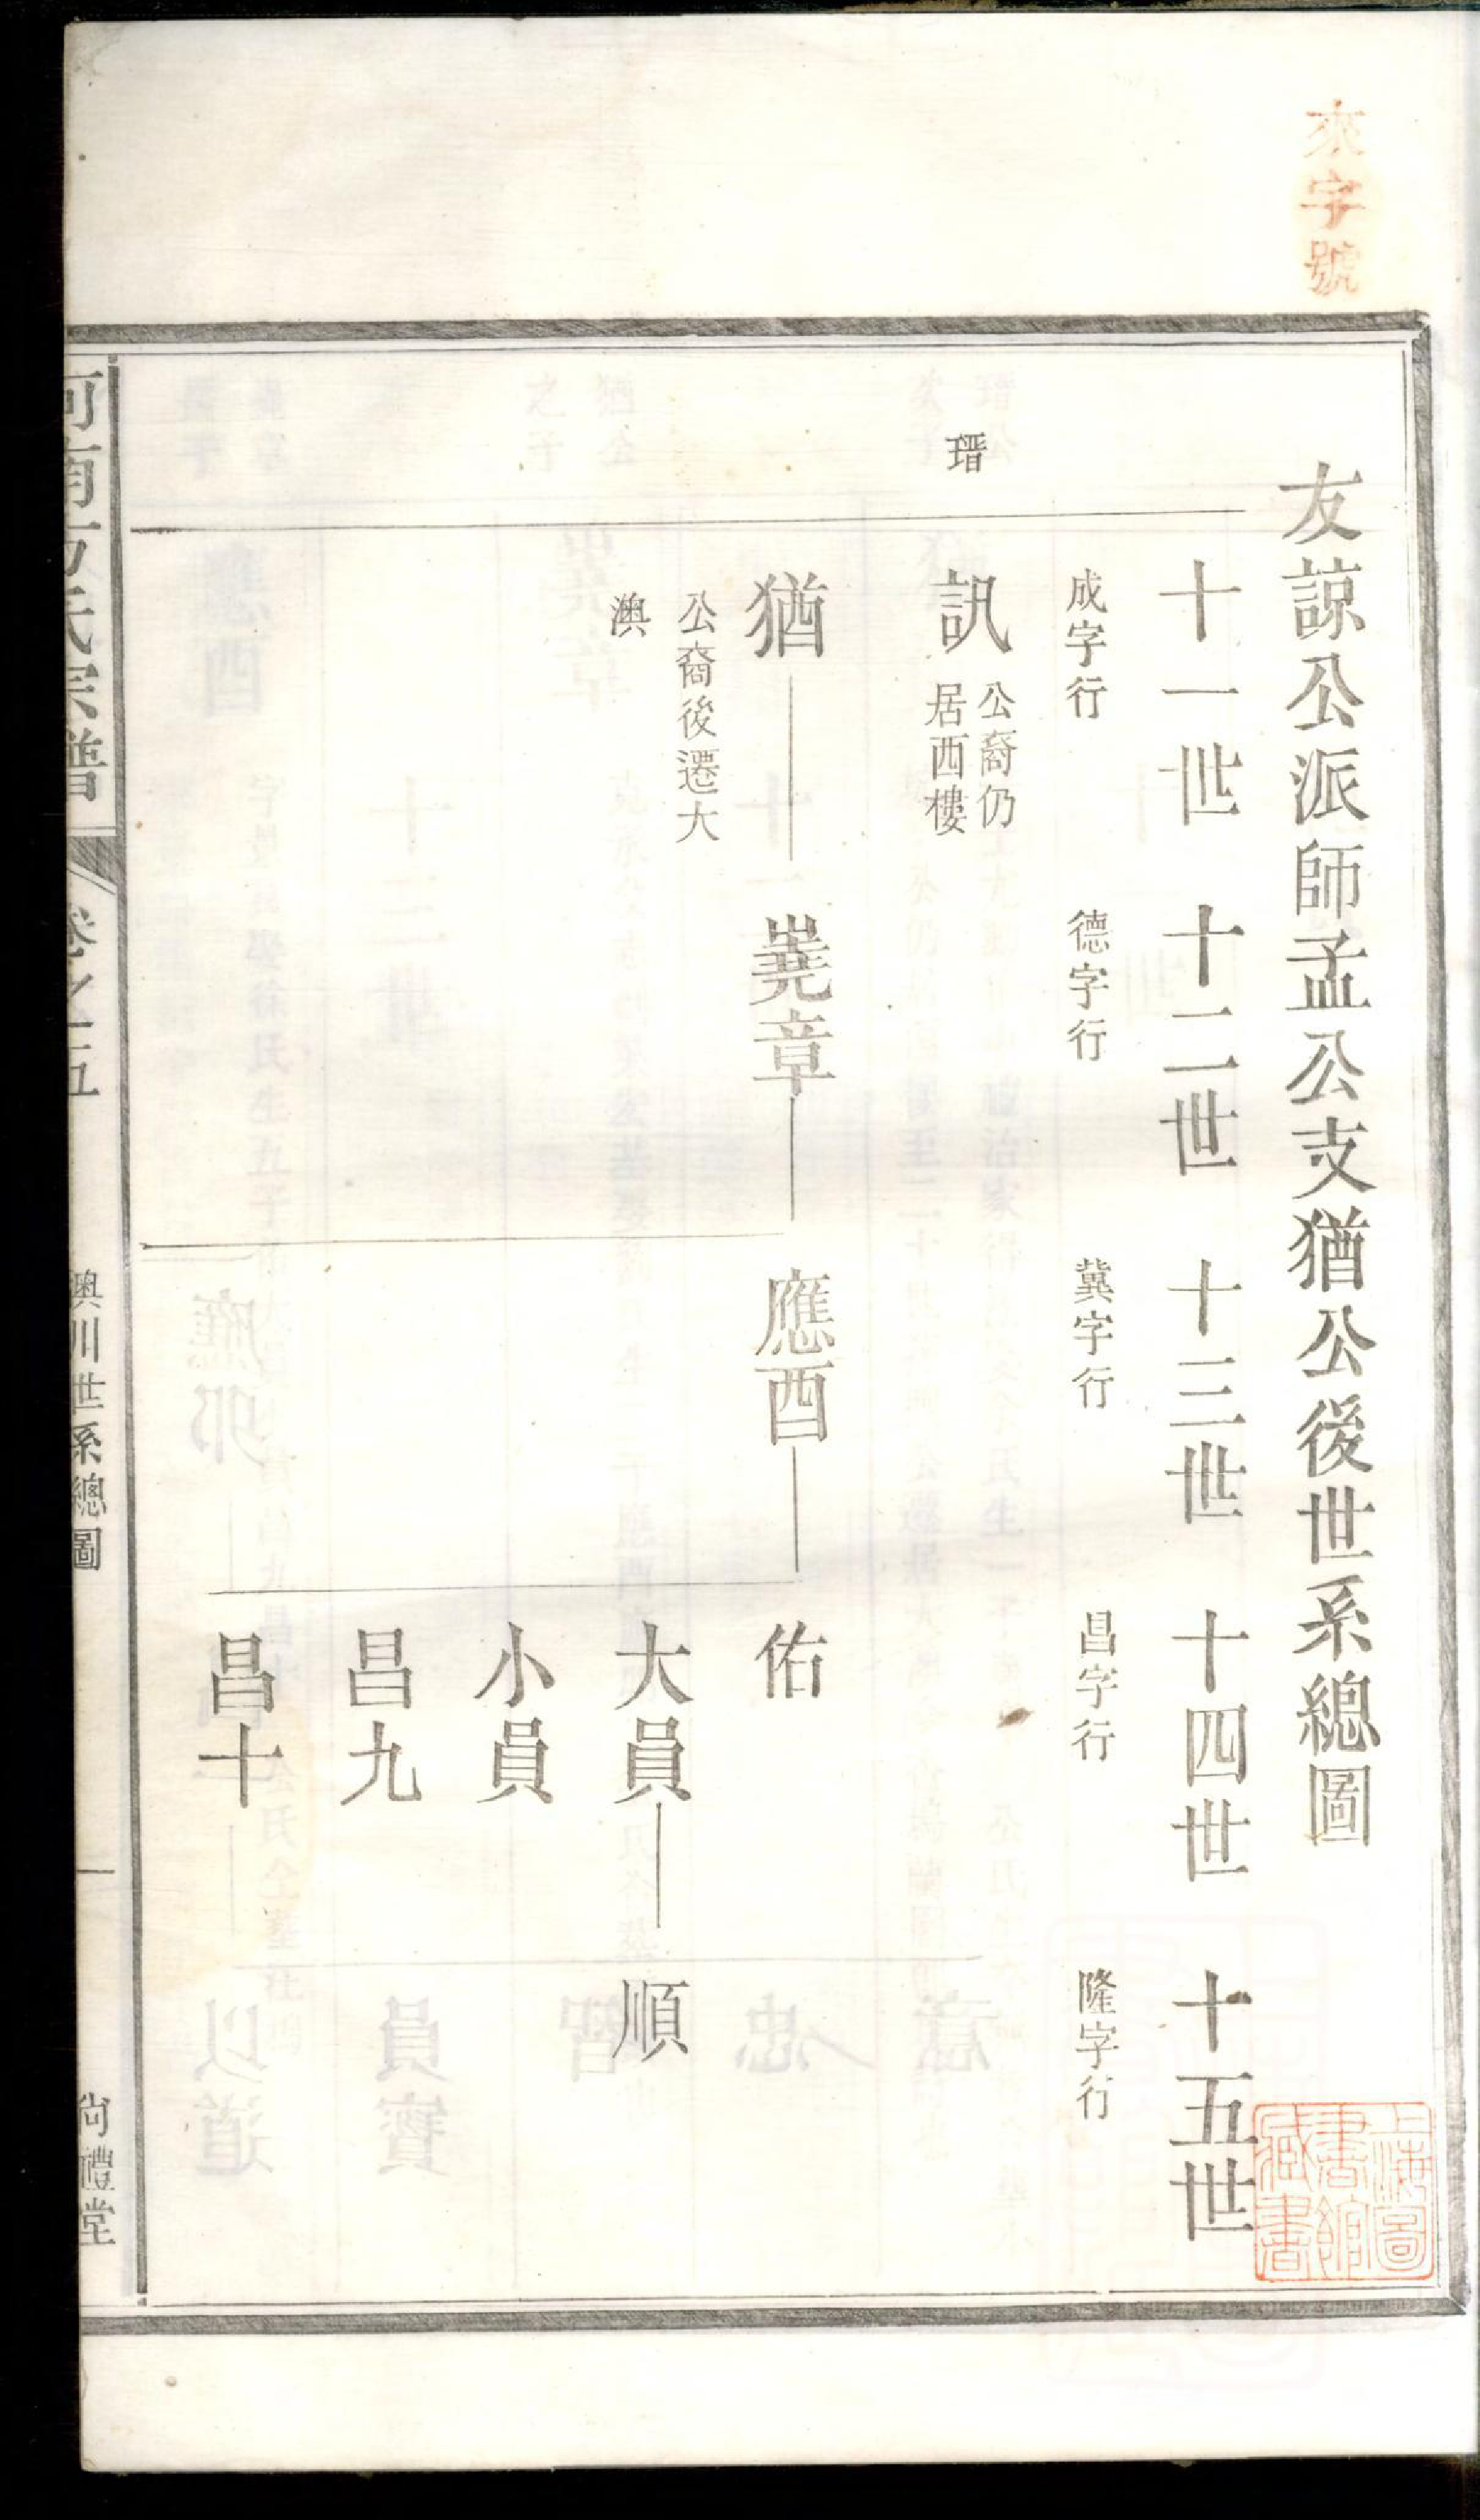 來字號
友諒公派師孟公支猶公後世系總圖
十一世 十二世 十三世 十四世 十五世
成字行 德字行 冀字行 昌字行 隆字行
瑨
訊 公裔仍居西樓
猶 嶤章 應酉 佑
公裔後遷大澳
大員 順
小員
昌九
昌十
河南方氏宗譜 卷之五 澳川世系總圖 一 尚禮堂
上海圖書館藏書